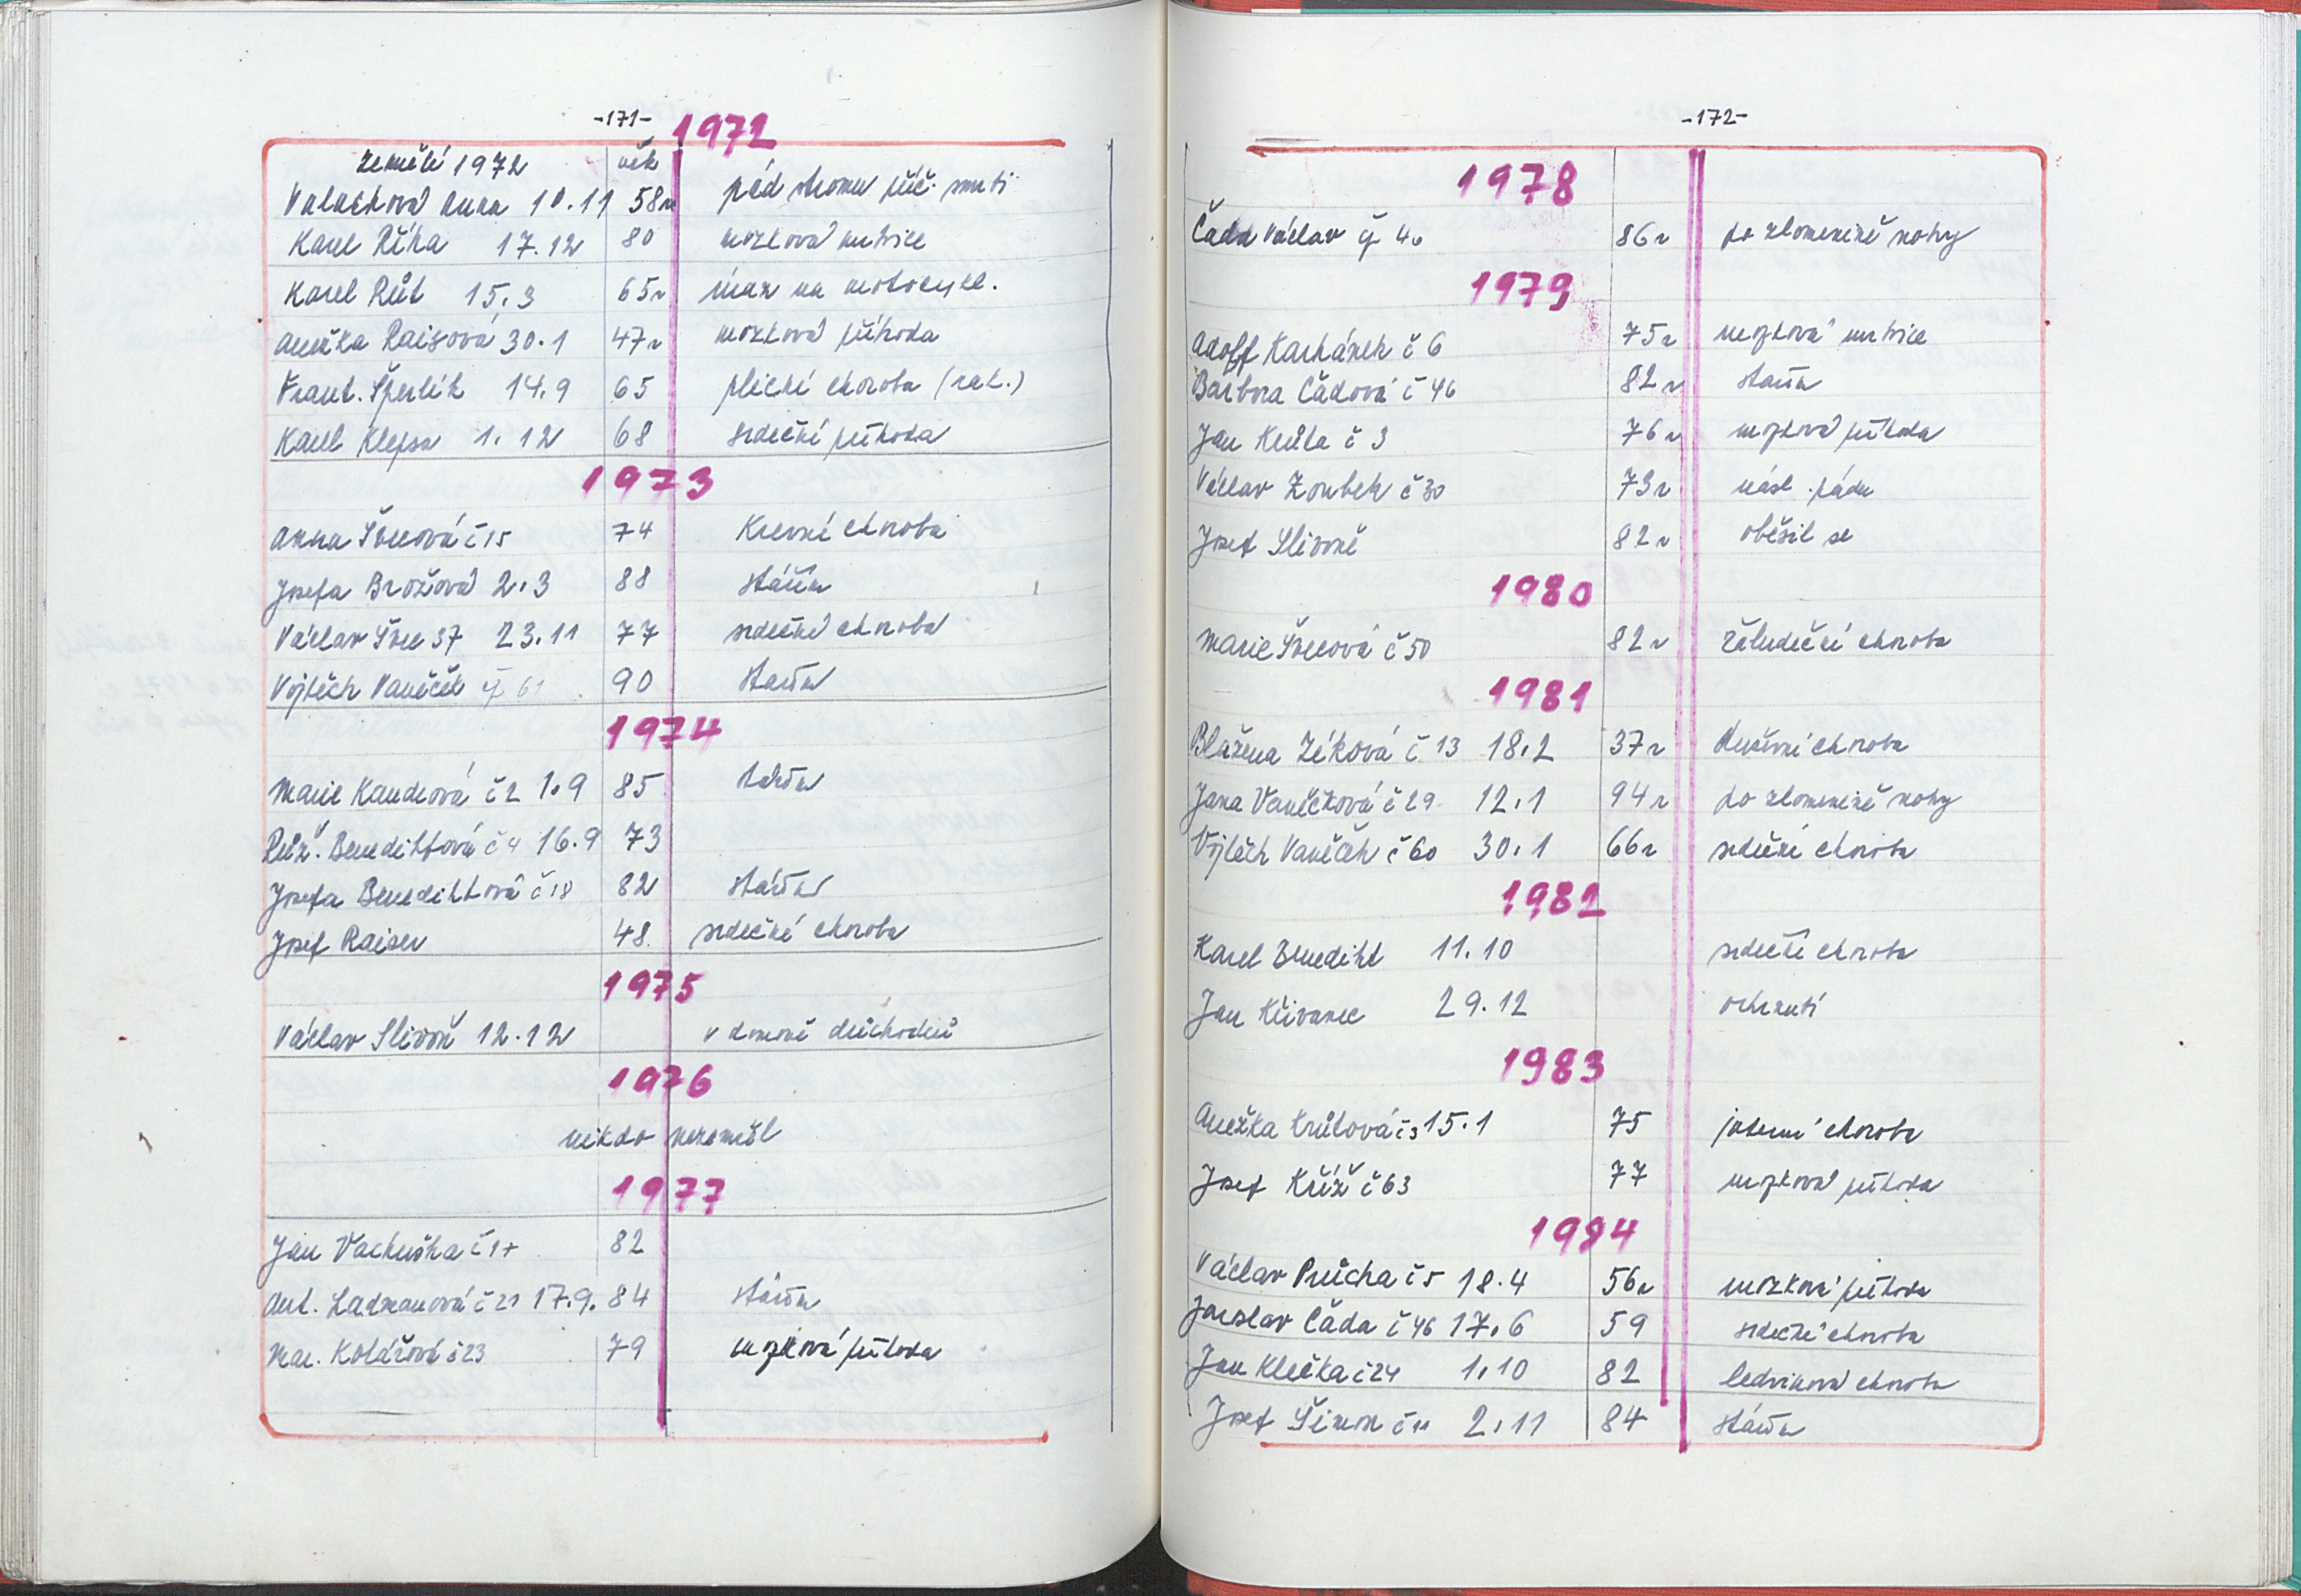 -171-
1972
zemřelí 1972 věk
Valachová Anna 10.11 58r pád stromu příč. smrti
Karel Říha 17.12 80 mozková mrtvice
Karel Růt 15.3 65r úraz na motocykl.
Anežka Raisová 30.1 47r mozková příhoda
Frant. Šperlík 14.9 65 plicní choroba (rak.)
Karel Klepsa 1.12 68 srdeční příhoda
1973
Anna Švecová č 15 74 Krevní choroba
Josefa Brožová 2.3 88 stářím
Václav Švec 37 23.11 77 srdeční choroba
Vojtěch Vaněček čp 61 90 stářím
1974
Marie Kandrová č 2 1.9 85 stářím
Růž. Benediktová č 4 16.9 73
Josefa Benediktová č 18 82 stářím
Josef Raiser 48 srdeční choroba
1975
Václav Slivoň 12.12 v domově důchodců
1976
nikdo nezemřel
1977
Jan Vachuška č 17 82
Ant. Ladmanová č 21 17.9. 84 stářím
Mar. Kolářová č 23 79 mozková příhoda
-172-
1978
Čada Václav čp 46 86r po zlomenině nohy
1979
Adolf Karhánek č 6 75r mozková mrtvice
Barbora Čadová č 46 82r stářím
Jan Krůta č 3 76r mozková příhoda
Václav Zoubek č 30 73r násl. pádu
Josef Slivoně 82r oběsil se
1980
Marie Švecová č 50 82r žaludeční choroba
1981
Blažena Zíková č 13 18.2 37r duševní choroba
Jana Vaněčková č 29 12.1 94r po zlomenině nohy
Vojtěch Vaněček č 60 30.1 66r srdeční choroba
1982
Karel Benedikt 11.10 srdeční choroba
Jan Křivanec 29.12 ochrnutí
1983
Anežka Krůtová č 3 15.1 75 jaterní choroba
Josef Kříž č 63 77 mozková příhoda
1984
Václav Průcha č 5 18.4 56r mozková příhoda
Jaroslav Čada č 46 17.6 59 srdeční choroba
Jan Klečka č 24 1.10 82 ledvinová choroba
Josef Šimon č 11 2.11 84 stářím